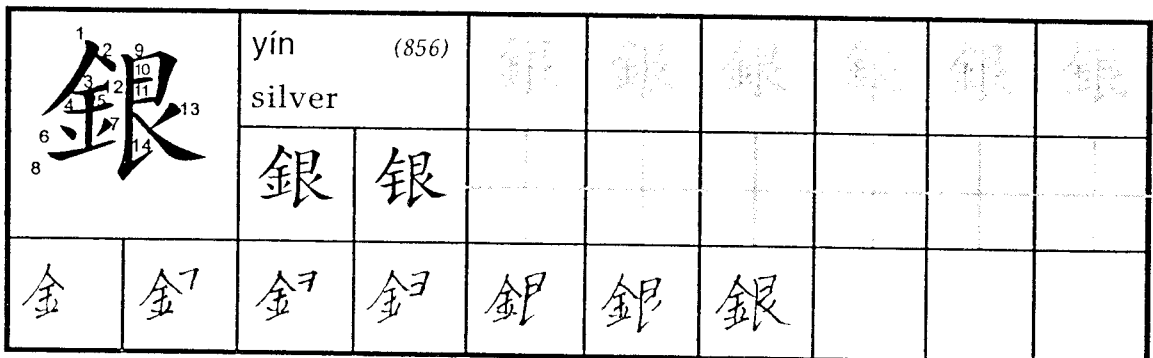 銀
1 2 3 4 5 6 7 8 9 10 11 12 13 14
yín (856)
silver
銀 銀 銀 銀 銀 銀
銀 银
金 金𠃍 金 金 銀